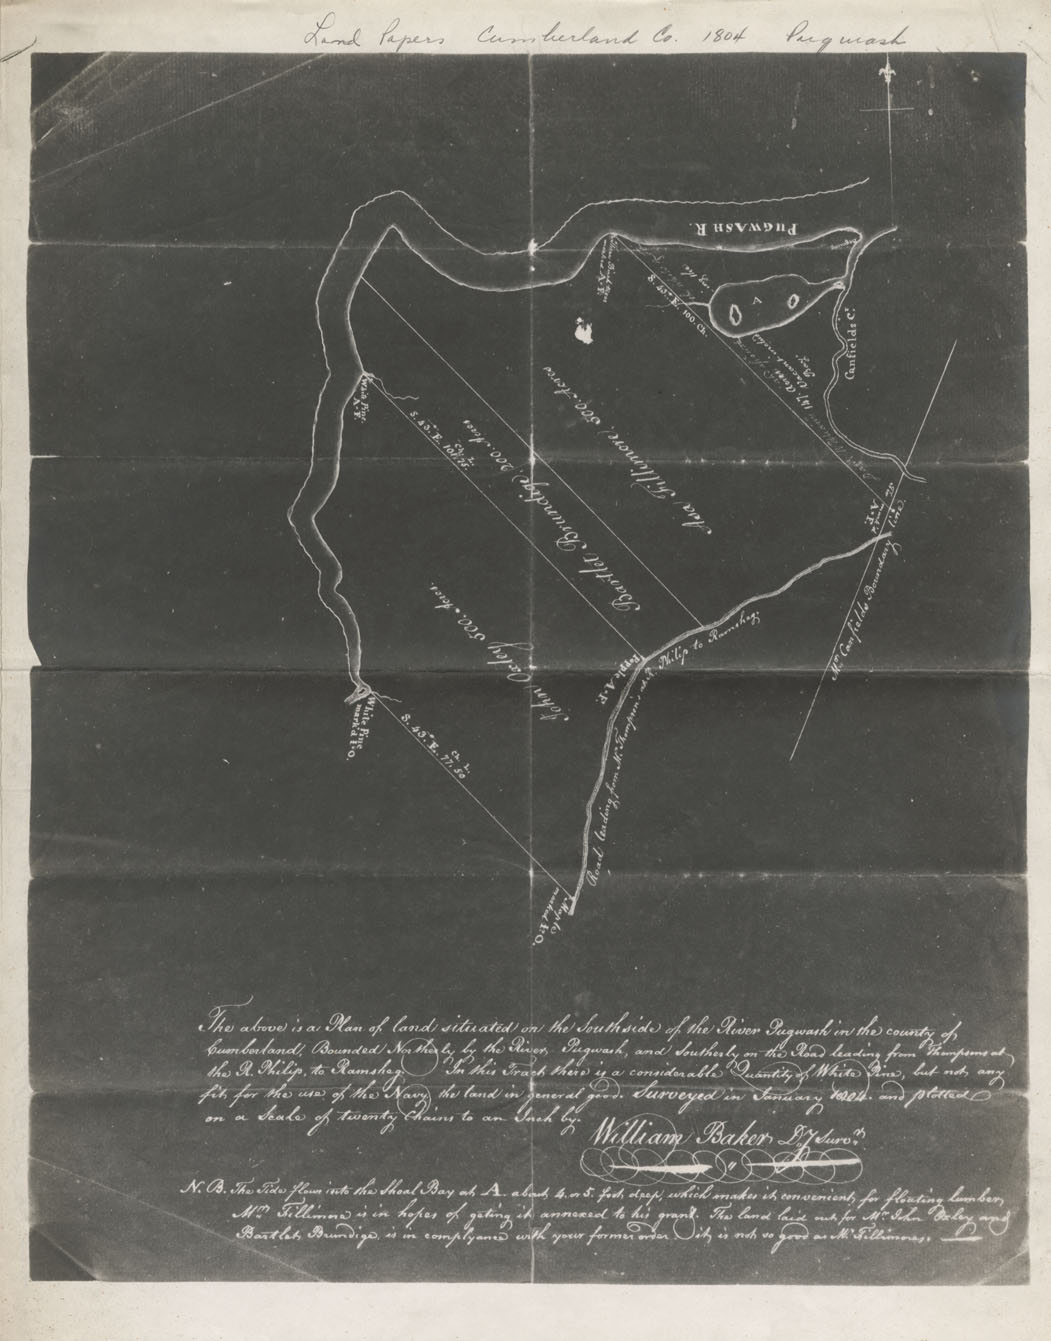 Land Papers Cumberland Co. 1804 Pugwash
PUGWASH R.
A
Canfields Cr.
S. 45° E. 100. Ch.
147 Acres
Asa Fillimore, 500. Acres
Bartlet Brundige, 200. Acres
S. 45° E. 101
John Oxley 500. Acres.
White Pine
mark'd I·O.
S. 45° E. 77. 50
Ch. L.
Popple A·F.
A·F.
Mr. Canfields Boundary line
Road leading from Mr. Thompsons at R. Philip to Ramsheg.
Maple
marked I·O.
The above is a Plan of land situated on the South side of the River Pugwash in the county of
Cumberland, Bounded Northerly by the River, Pugwash, and Southerly on the Road leading from Thompsons at
the R. Philip, to Ramsheg In this Tract there is a considerable Quantity of White Pine, but not any
fit for the use of the Navy the land in general good. Surveyed in January 1804. and plotted
on a Scale of twenty Chains to an Inch by.
William Baker Dy Survr.
N. B. The Tide flows into the Shoal Bay at A. about 4. or 5. foot deep, which makes it convenient, for floating lumber,
Mr. Fillimore is in hopes of geting it annexed to his grant. The land laid out for Mr. John Oxley and
Bartlet Brundige, is in complyance with your former order it is not so good as Mr. Fillimores.